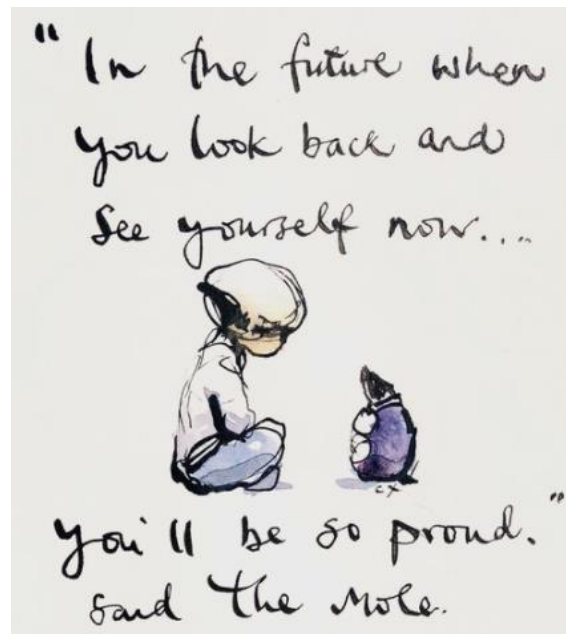 " In the future when
you look back and
see yourself now....
cx
you'll be so proud."
said the Mole.